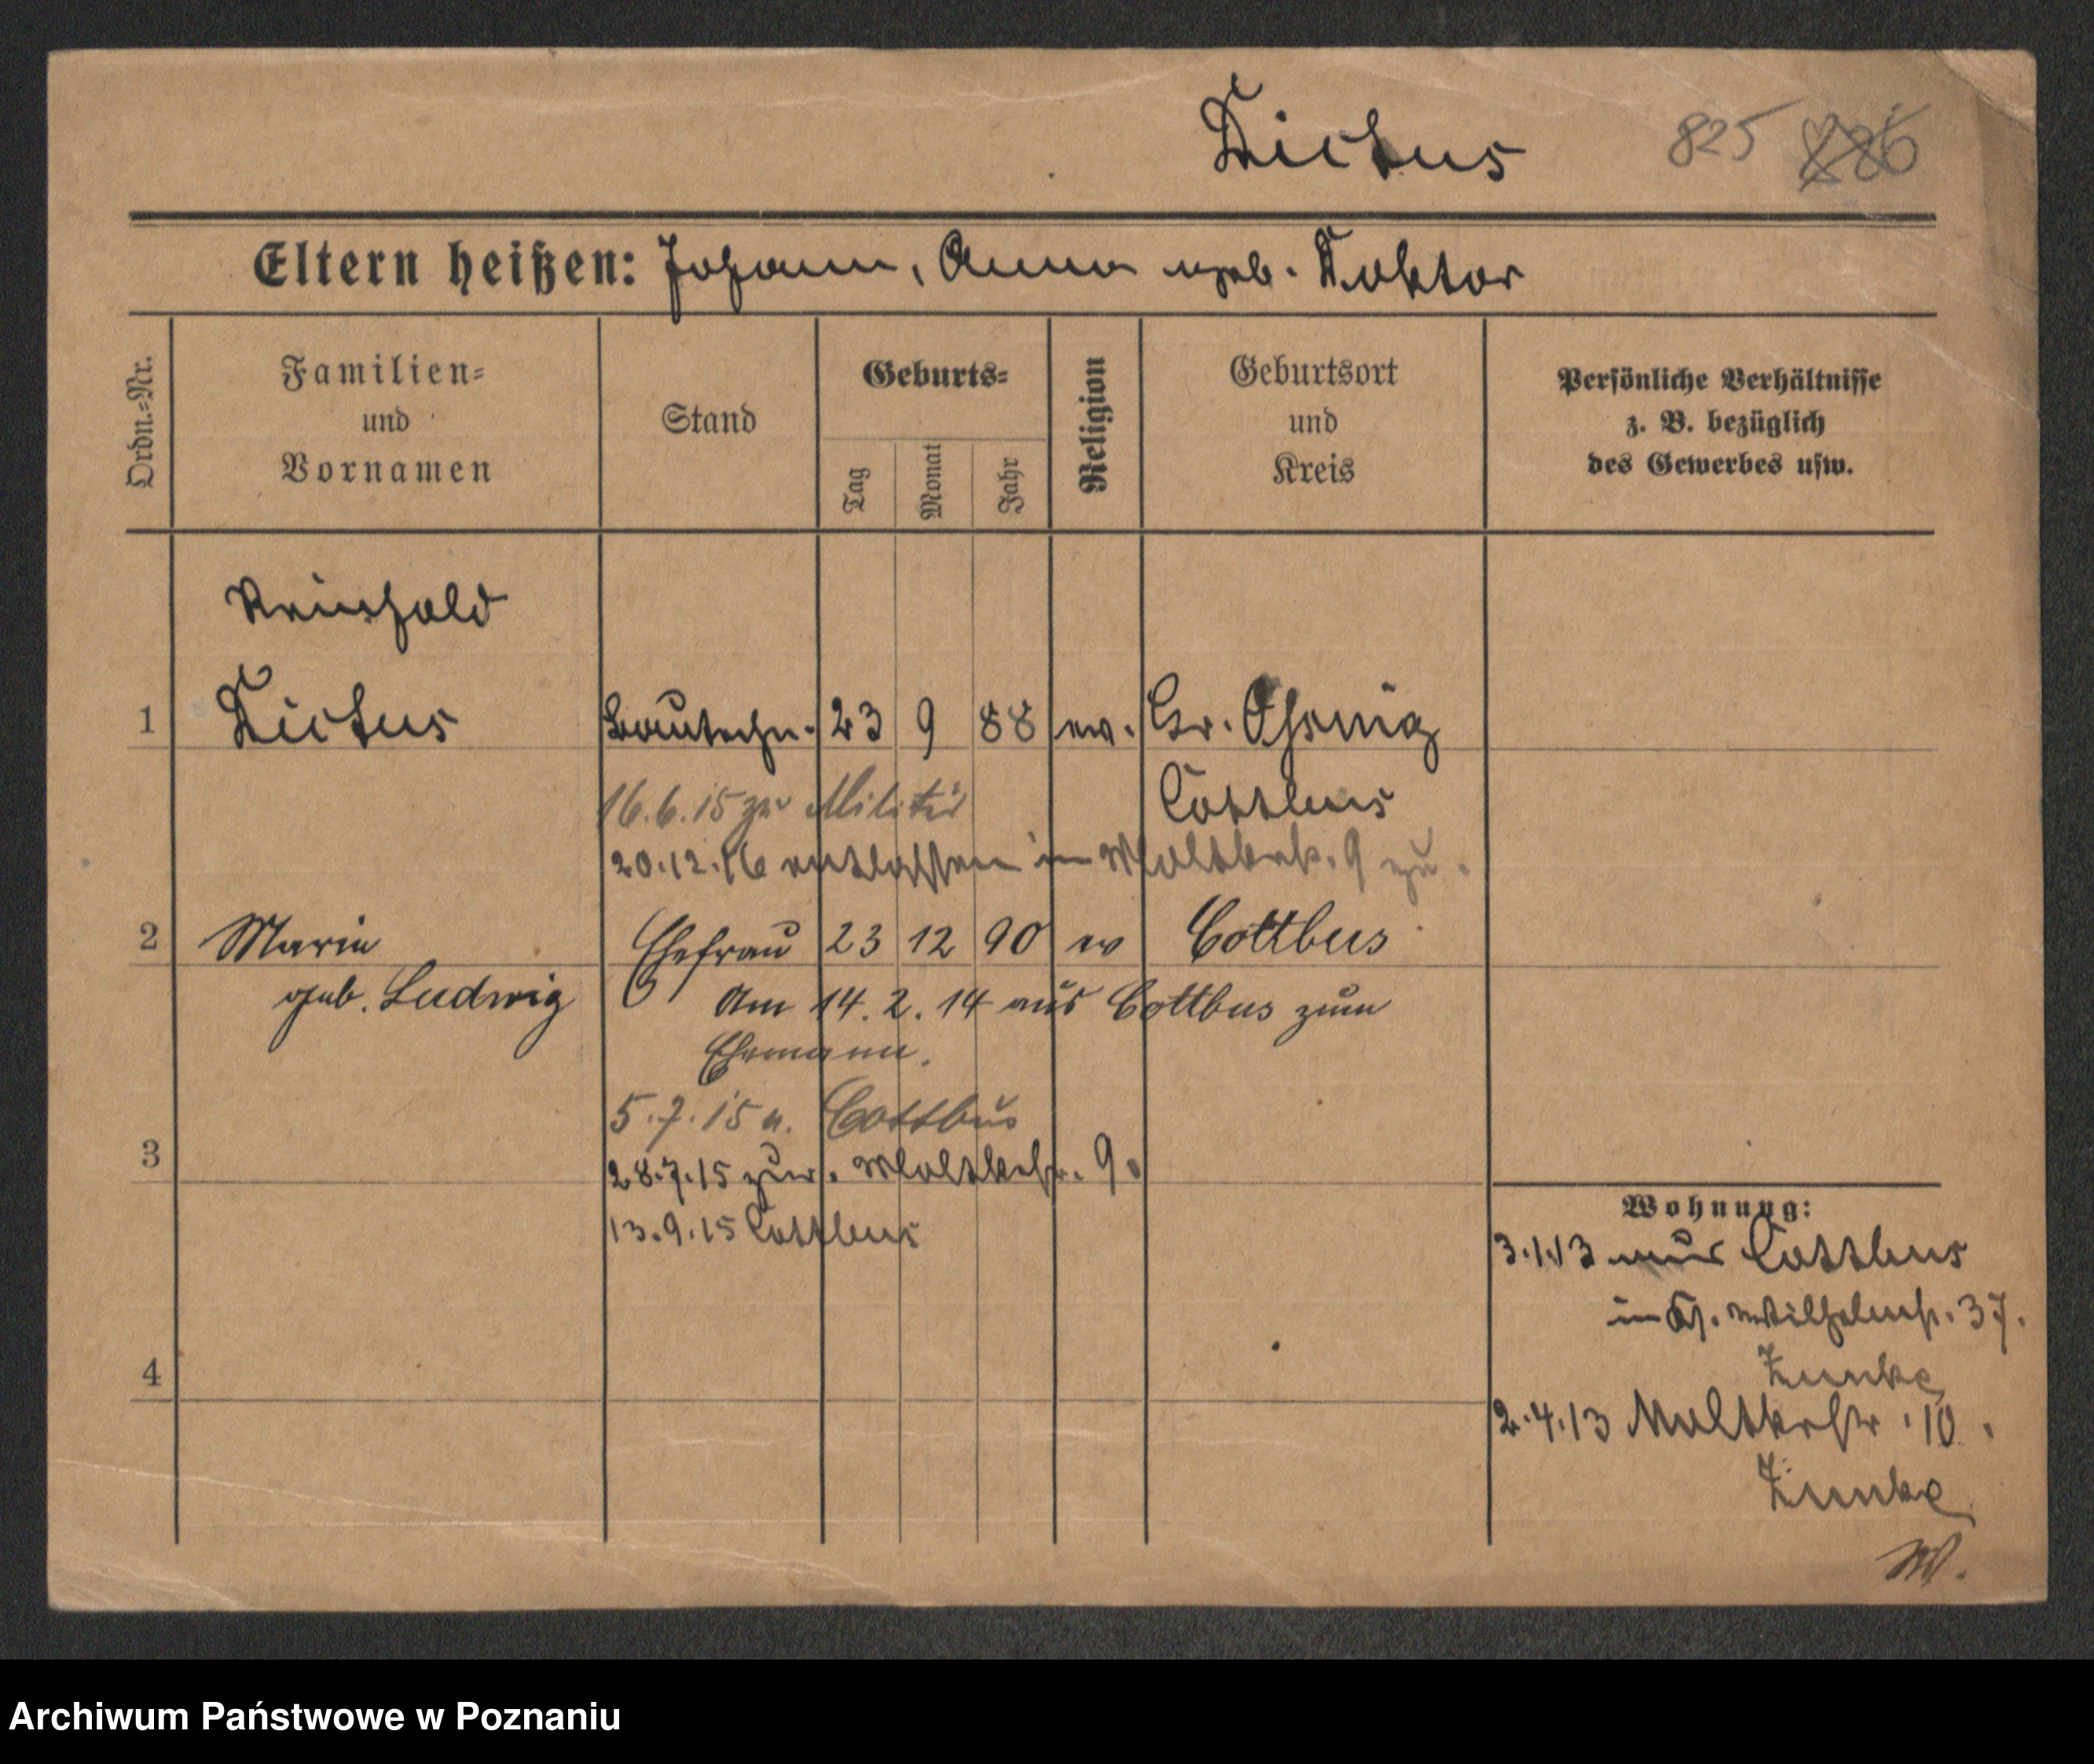 Dictus 825
Eltern heißen: Johann, Anna geb. Doktor
Ordn.=Nr.
Familien=
und
Vornamen
Stand
Geburts=
Tag
Monat
Jahr
Religion
Geburtsort
und
Kreis
Persönliche Verhältnisse
z. B. bezüglich
des Gewerbes usw.
Reinhold
1 Dictus Bautechn. 23 9 88 ev. Gr. Oßnig
Cottbus
16.6.15 zu Militär
20.12.16 entlassen in Moltkestr. 9 zu.
2 Marie Ehefrau 23 12 90 ev Cottbus
geb. Ludwig
Am 14.2.14 aus Cottbus zum
Ehemann.
5.7.15 n. Cottbus
3
28.7.15 zur. Moltkestr. 9.
13.9.15 Cottbus
4
Wohnung:
3.1.13 aus Cottbus
in Kr. Wilhelmstr. 37.
Zunke
2.4.13 Moltkestr. 10.
Zunke
W.
Archiwum Państwowe w Poznaniu